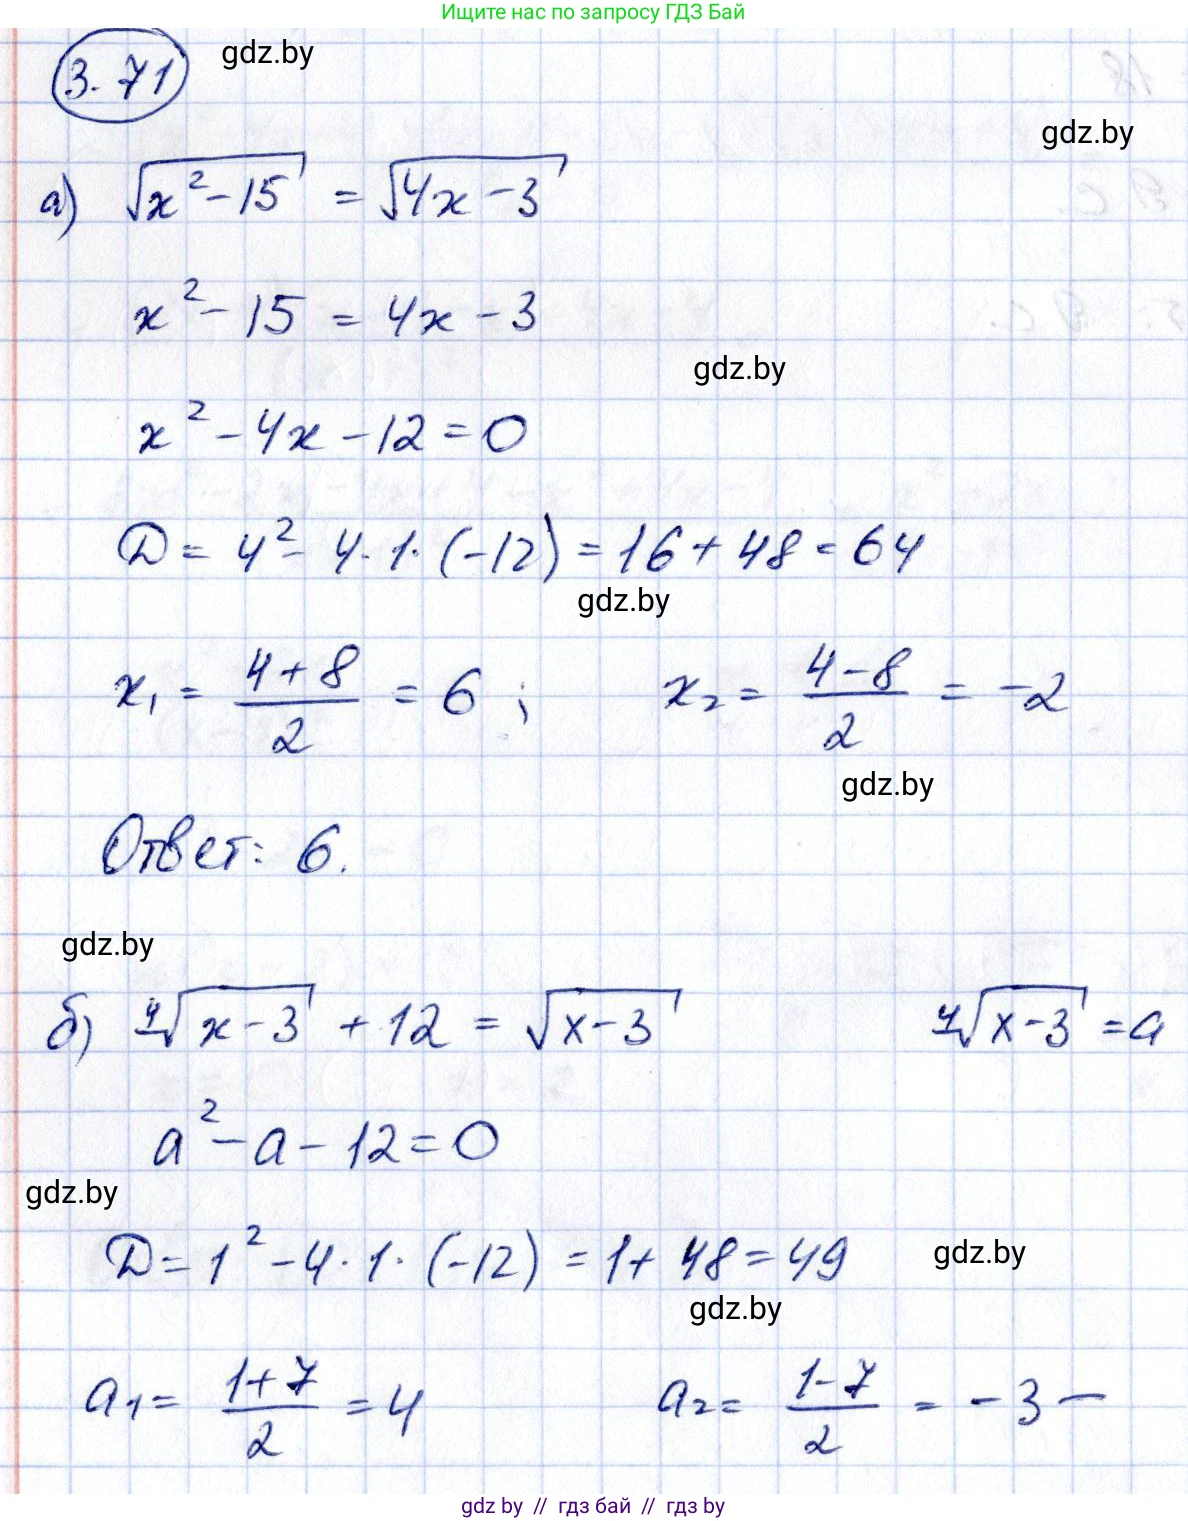 Ищите нас по запросу ГДЗ Бай
3.71
gdz.by
gdz.by
а) √(x² - 15) = √(4x - 3)
x² - 15 = 4x - 3
gdz.by
x² - 4x - 12 = 0
D = 4² - 4 · 1 · (-12) = 16 + 48 = 64
gdz.by
x₁ = (4 + 8)/2 = 6 ; x₂ = (4 - 8)/2 = -2
gdz.by
Ответ: 6.
gdz.by
б) ⁴√(x - 3) + 12 = √(x - 3) ⁴√(x - 3) = a
a² - a - 12 = 0
gdz.by
D = 1² - 4 · 1 · (-12) = 1 + 48 = 49
gdz.by
gdz.by
a₁ = (1 + 7)/2 = 4 a₂ = (1 - 7)/2 = -3 –
gdz by // гдз бай // гдз by